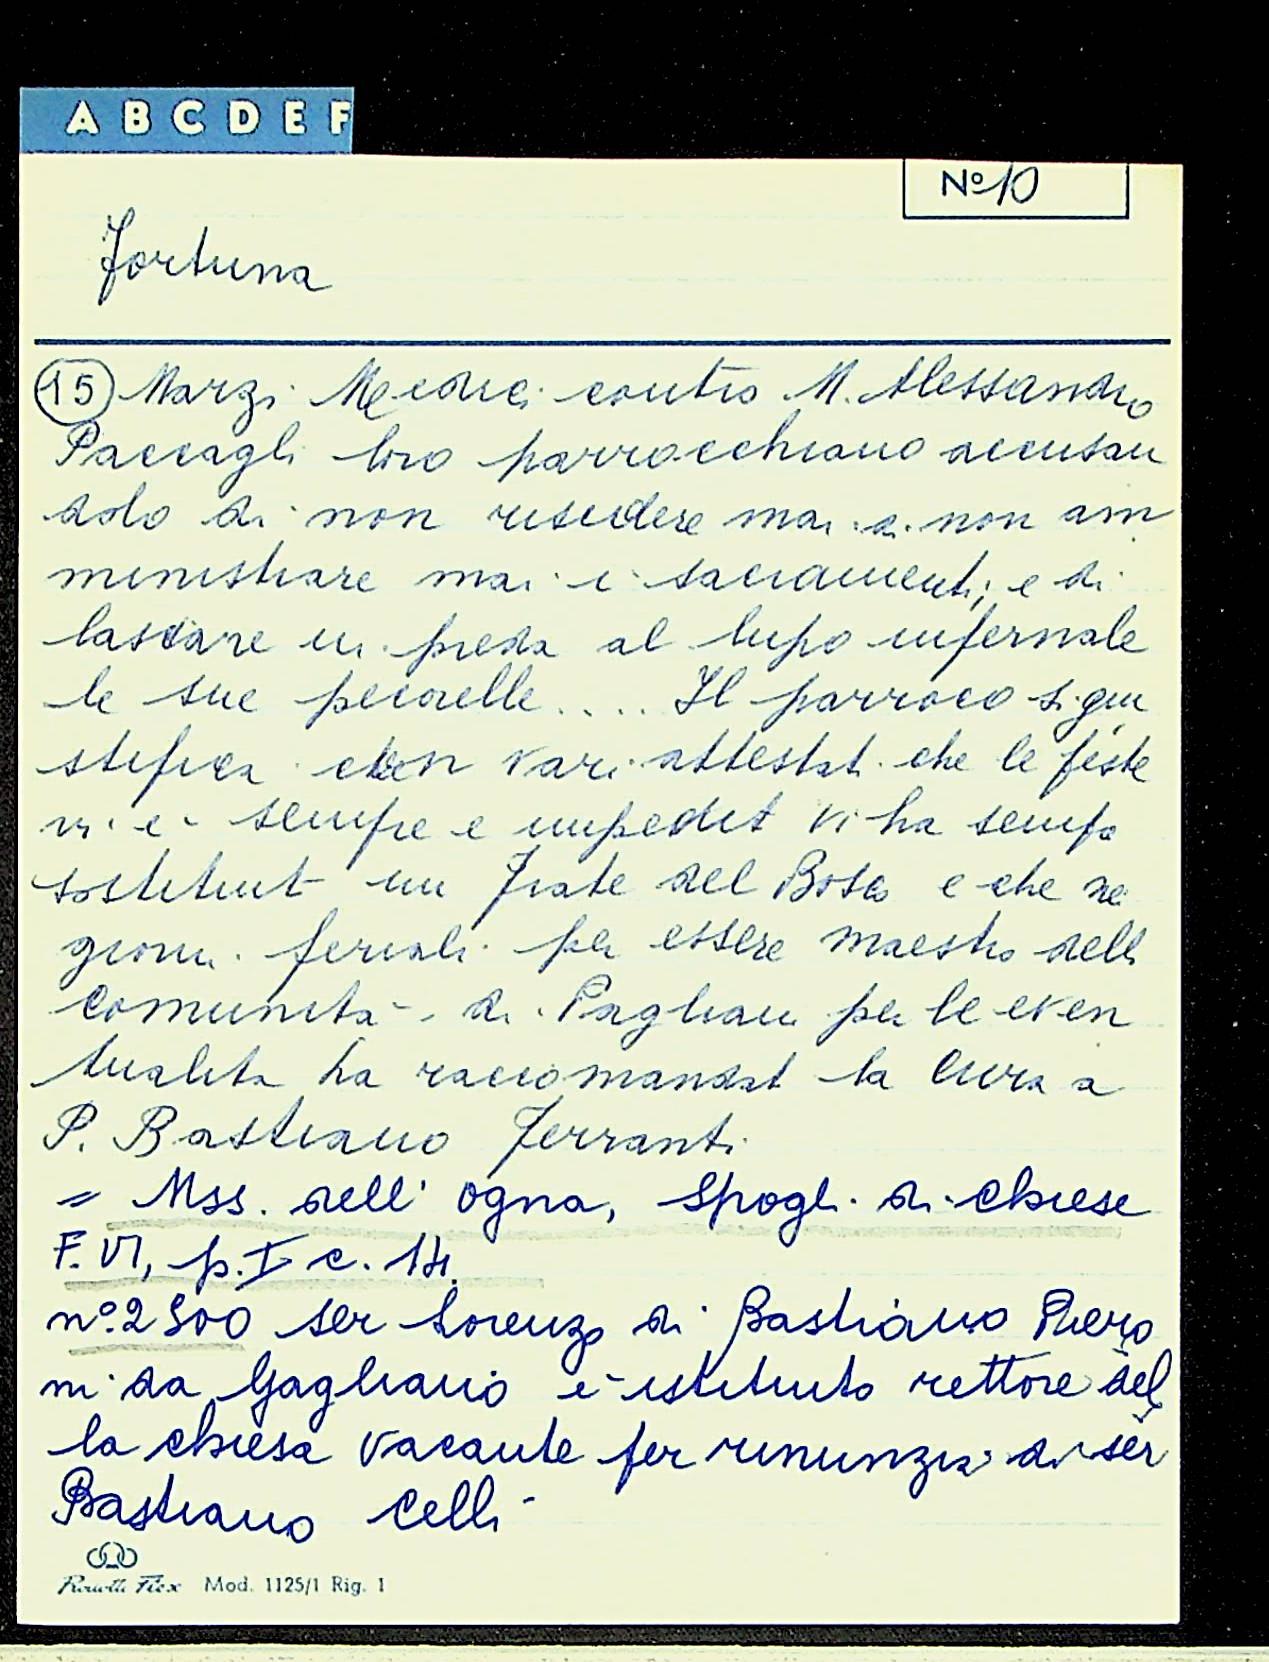 A B C D E F
Nº 10
Fortuna
15 Marzi Medici contro M. Alessandro
Paccagli loro parrocchiano accusan
dolo di non risiedere mai di non am
ministrare mai i sacramenti; e di
lasciare in preda al lupo infernale
le sue pecorelle.... Il parroco si giu
stifica con vari attestati che le feste
vi è sempre e impedit vi ha sempre
sostituit un Frate del Bosco e che ne
giorni feriali per essere maestro della
comunità di Pagliano per le even
tualità ha raccomandat la cura a
P. Bastiano Ferranti
= Mss. dell' Ogna, Spogli di Chiese
F. VI, p. I c. 14.
nº. 2500 ser Lorenzo di Bastiano Piero
ni da Gagliano è istituito rettore del
la chiesa vacante per rinunzia di ser
Bastiano Celli
Mod. 1125/1 Rig. 1